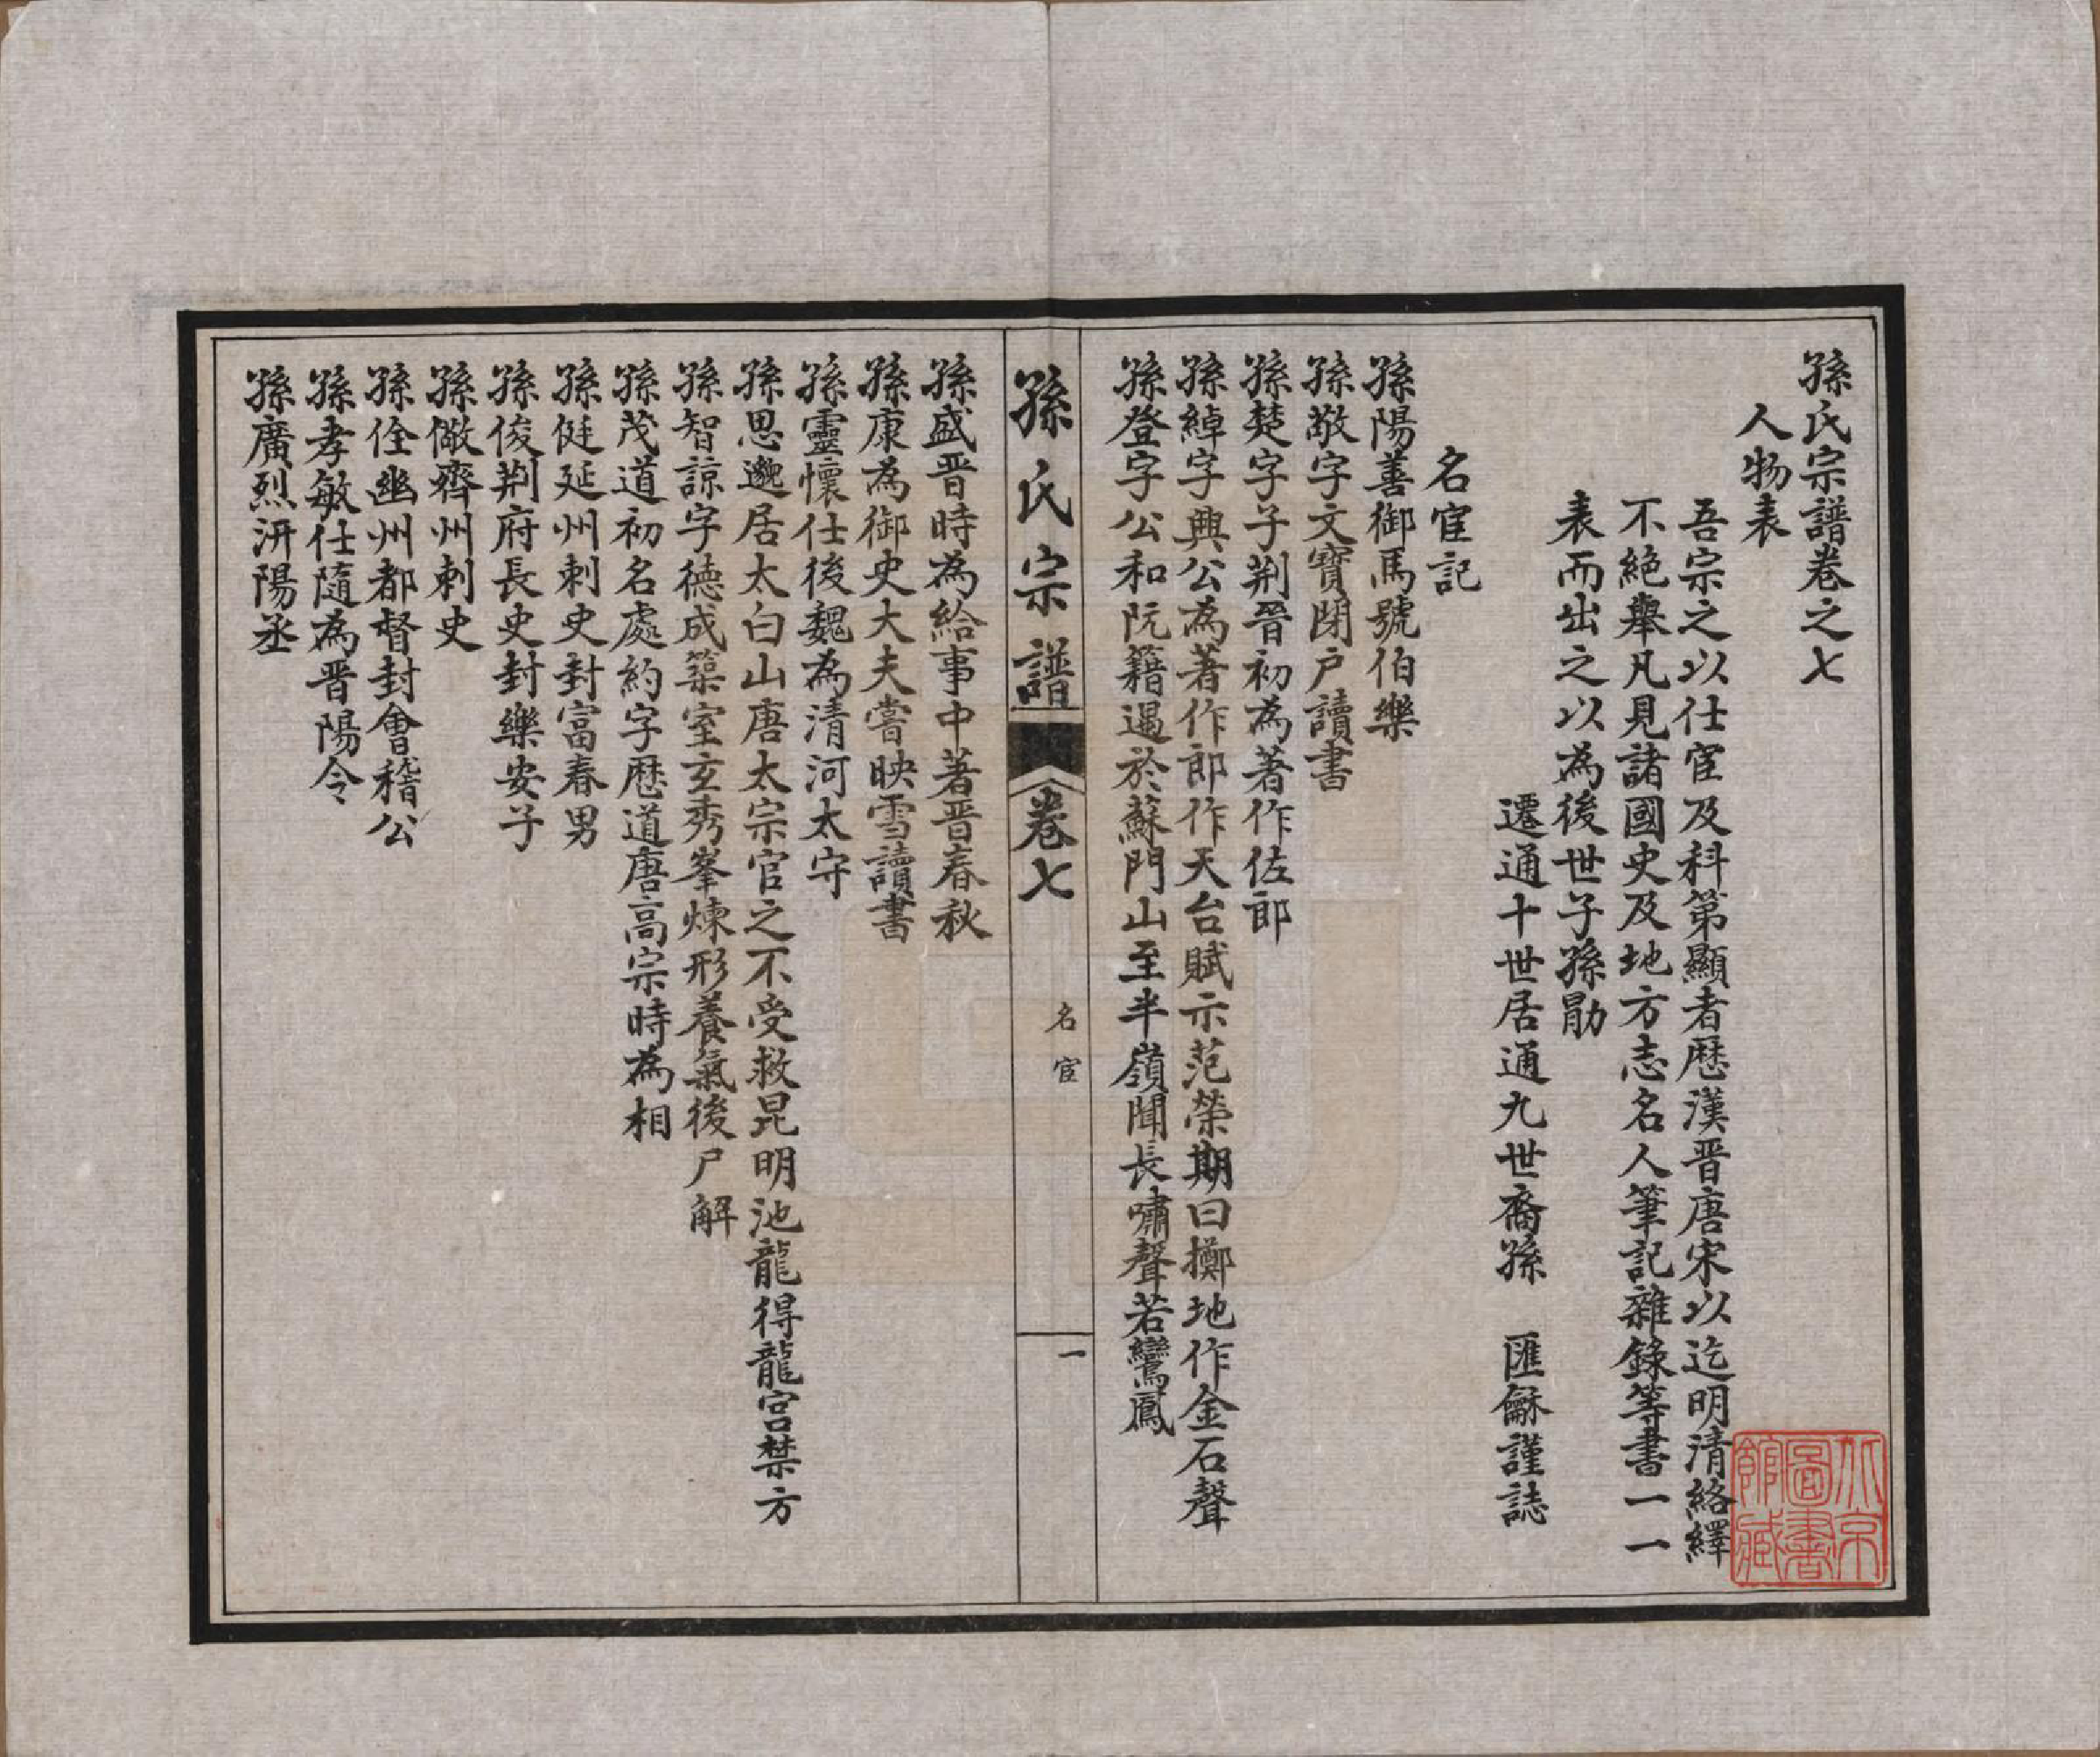 孫氏宗譜卷之七
人物表
吾宗之以仕宦及科第顯者歷漢晋唐宋以迄明清絡繹
不絕舉凡見諸國史及地方志名人筆記雜錄等書一一
表而出之以為後世子孫勖
遷通十世居通九世裔孫 匯龢謹誌
名宦記
孫陽善御馬號伯樂
孫敬字文寶閉户讀書
孫楚字子荆晉初為著作佐郎
孫綽字興公為著作郎作天台賦示范榮期曰擲地作金石聲
孫登字公和阮籍遇於蘇門山至半嶺聞長嘯聲若鸞鳳
孫氏宗譜 卷七 名宦 一
孫盛晋時為給事中著晋春秋
孫康為御史大夫嘗映雪讀書
孫靈懷仕後魏為清河太守
孫思邈居太白山唐太宗官之不受救昆明池龍得龍宮禁方
孫智諒字德成築室玄秀峯煉形養氣後尸解
孫茂道初名處約字歷道唐高宗時為相
孫侹延州刺史封富春男
孫俊荆府長史封樂安子
孫儆齊州刺史
孫佺幽州都督封會稽公
孫孝敏仕隨為晋陽令
孫廣烈汧陽丞
北京圖書館藏